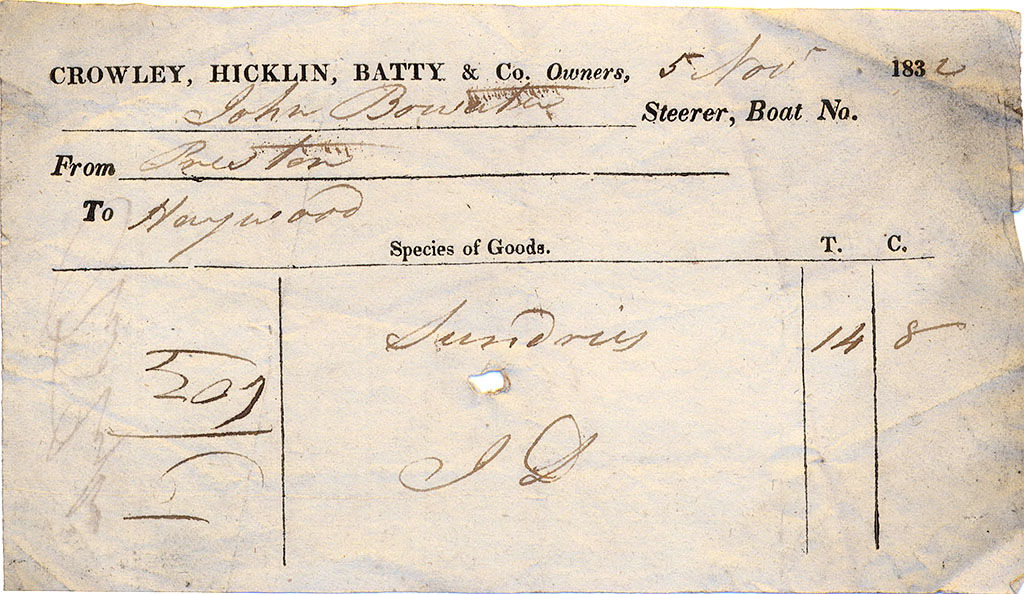 CROWLEY, HICKLIN, BATTY & Co. Owners, 5 Nov 1832
John Bowater Steerer, Boat No.
From Preston
To Haywood
Species of Goods. T. C.
Sundries 14 8
J D